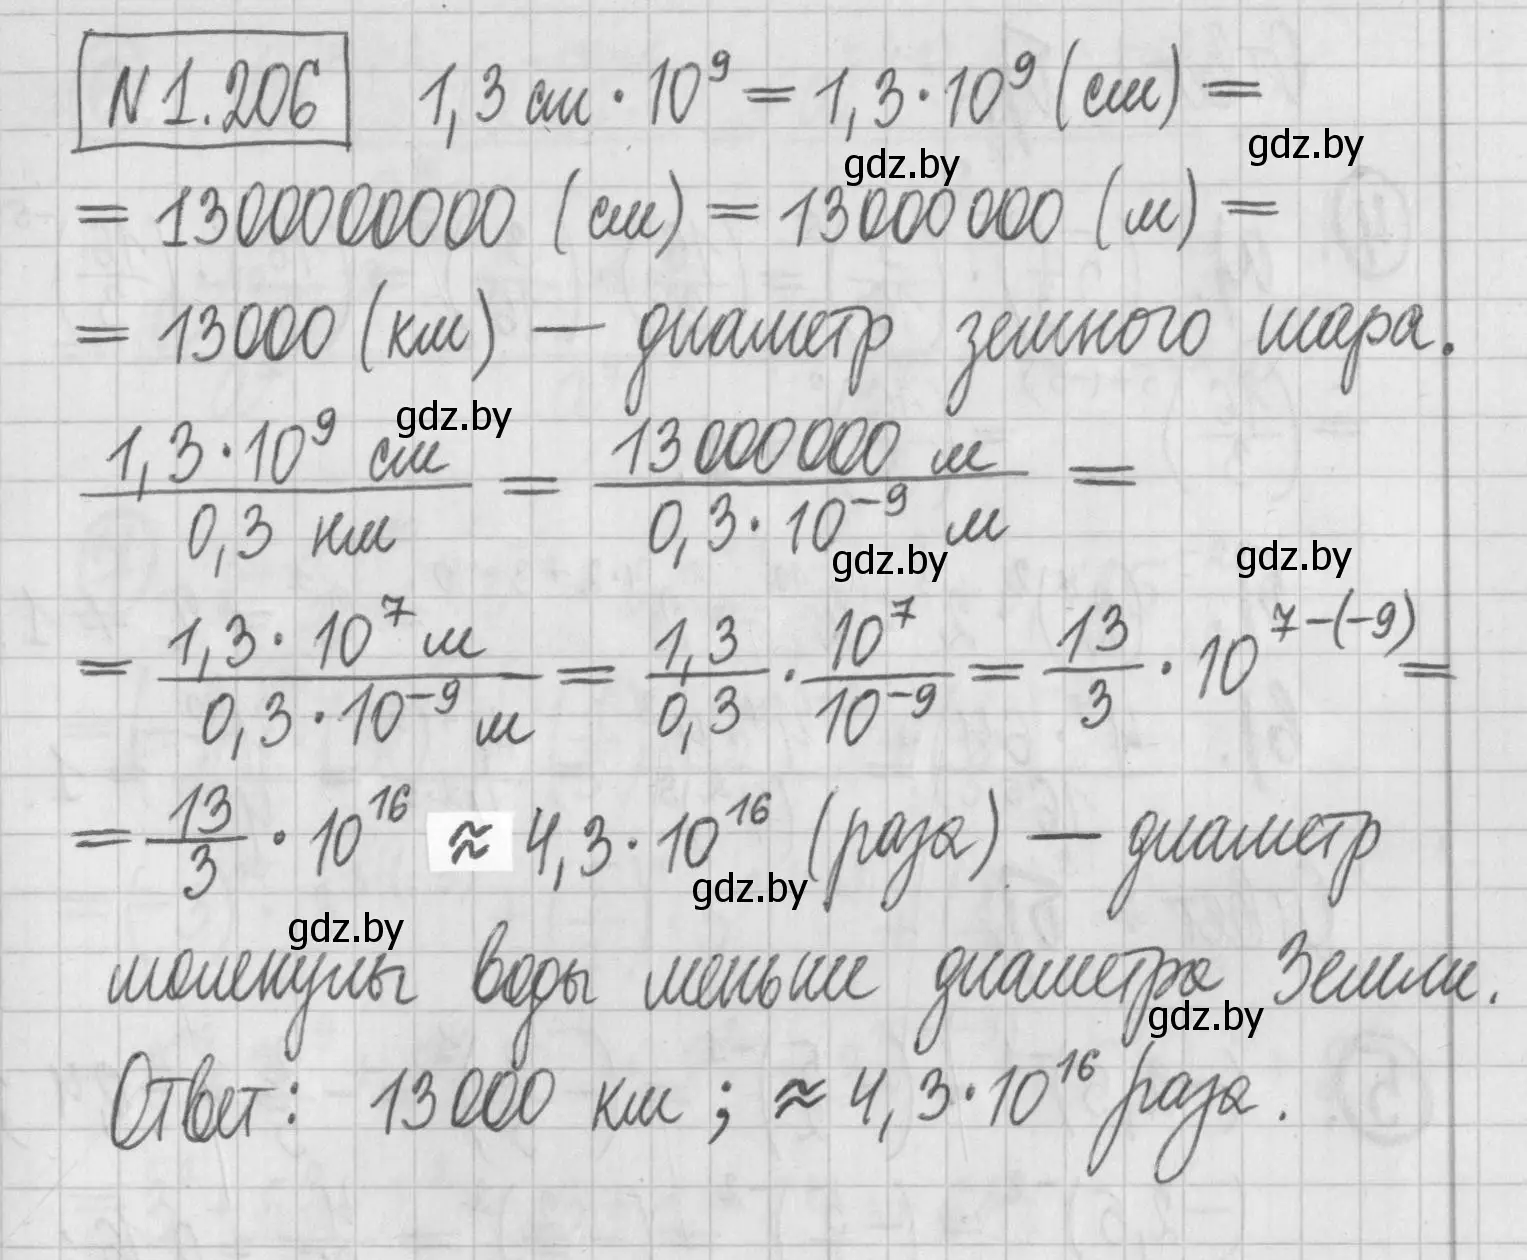 N 1.206   1,3 см · 10⁹ = 1,3 · 10⁹ (см) =
gdz.by gdz.by
= 1300000000 (см) = 13000 000 (м) =
= 13000 (км) — диаметр земного шара.
gdz.by
1,3 · 10⁹ см / 0,3 нм = 13 000 000 м / 0,3 · 10⁻⁹ м =
gdz.by gdz.by
= 1,3 · 10⁷ м / 0,3 · 10⁻⁹ м = 1,3 / 0,3 · 10⁷ / 10⁻⁹ = 13 / 3 · 10⁷⁻⁽⁻⁹⁾ =
= 13 / 3 · 10¹⁶ ≈ 4,3 · 10¹⁶ (раза) — диаметр
gdz.by
gdz.by
молекулы воды меньше диаметра Земли.
gdz.by
Ответ: 13 000 км ; ≈ 4,3 · 10¹⁶ раза.